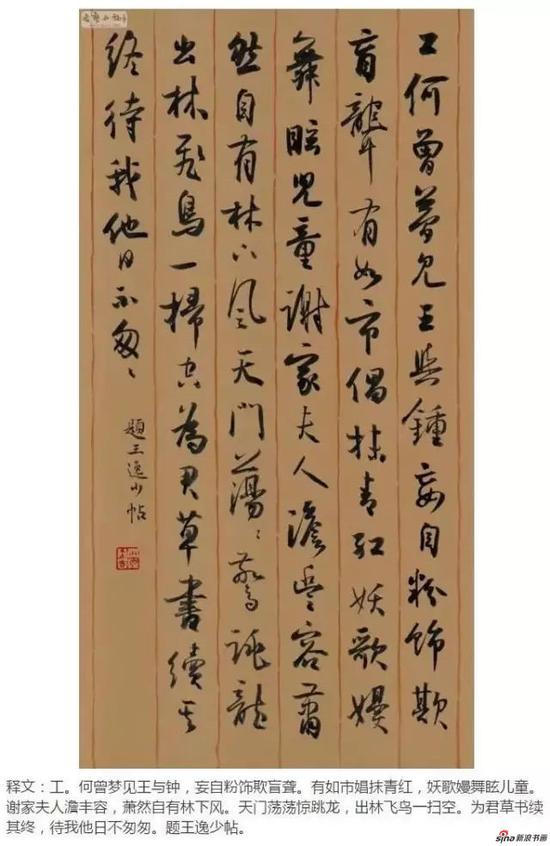 工何曾夢見王與鍾妄自粉飾欺
盲聾有如市倡抹青紅妖歌嫚
舞眩兒童謝家夫人澹丰容蕭
然自有林下風天門蕩〻驚跳龍
出林飛鳥一掃空為君草書續其
終待我他日不匆〻
題王逸少帖
释文：工。何曾梦见王与钟，妄自粉饰欺盲聋。有如市娼抹青红，妖歌嫚舞眩儿童。
谢家夫人澹丰容，萧然自有林下风。天门荡荡惊跳龙，出林飞鸟一扫空。为君草书续
其终，待我他日不匆匆。题王逸少帖。
sina新浪书画